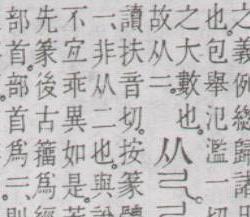 之義例總歸
也包舉氾濫一
之大數也
故从二
从
讀扶音切按篆體
一非从二也與
不宜乖異如是
先篆後古籀爲
部首部首爲二則